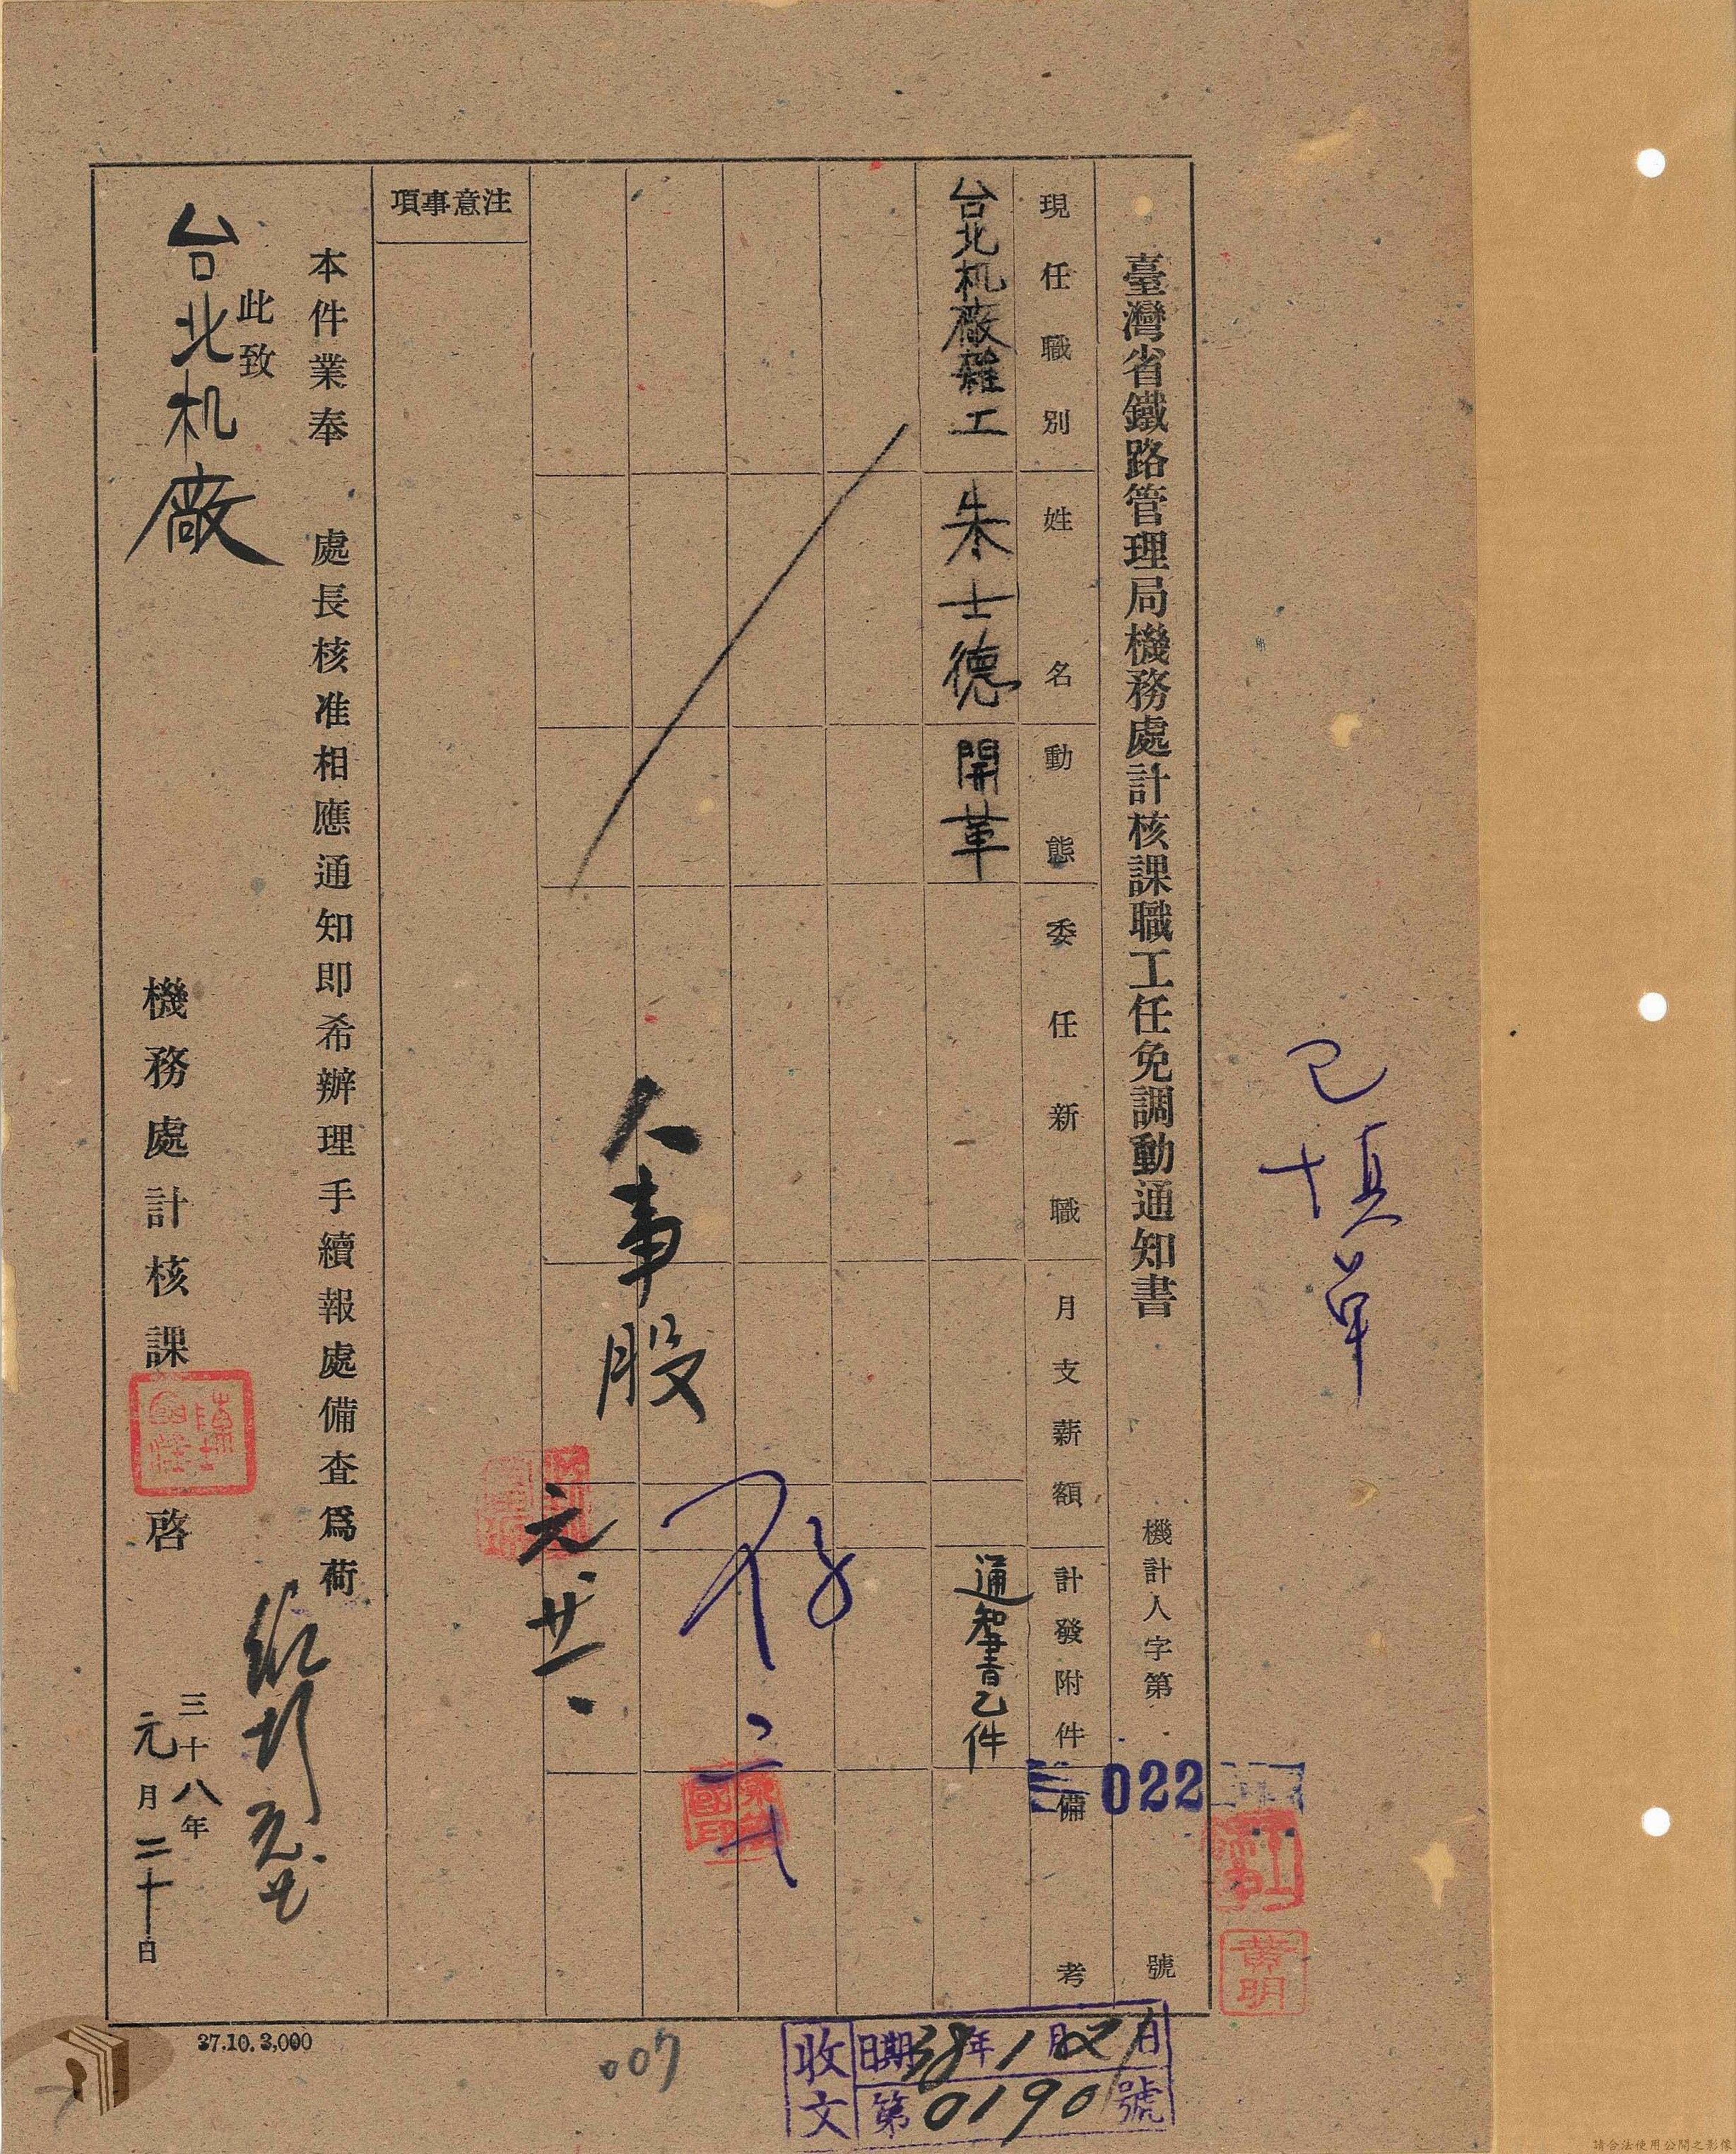 已填單
臺灣省鐵路管理局機務處計核課職工任免調動通知書
機計人字第 022 號
現任職別 姓名 動態 委任新職 月支薪額 計發附件 備考
台北机廠雜工 朱士德 開革 通知書乙件
存
人事股
元廿一
注意事項
本件業奉 處長核准相應通知即希辦理手續報處備查爲荷
此致
台北机廠
機務處計核課 啓
三十八年
元月二十日
黃明
收文
日期38年1月21日
第0190號
37.10.3,000
007
請合法使用公開之影像